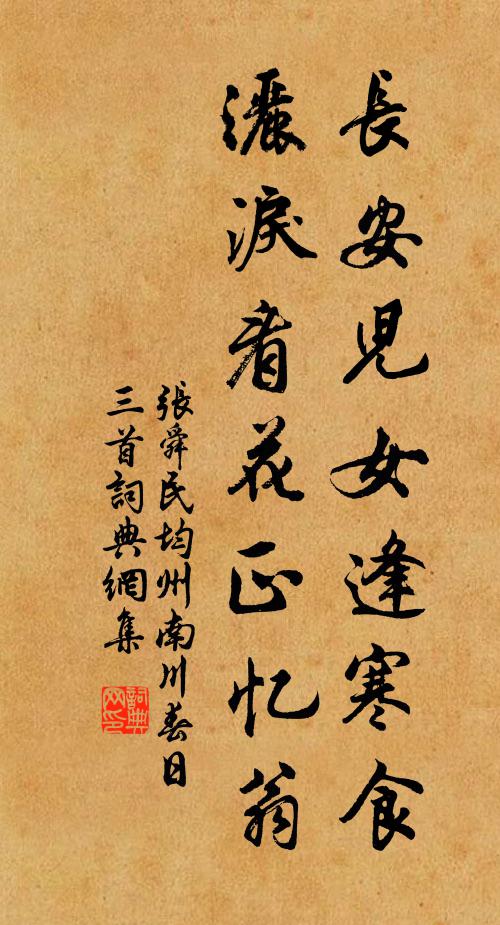 長安兒女逢寒食
灑淚看花正忆翁
張舜民均州南川春日
三首詞典網集
詞典网印